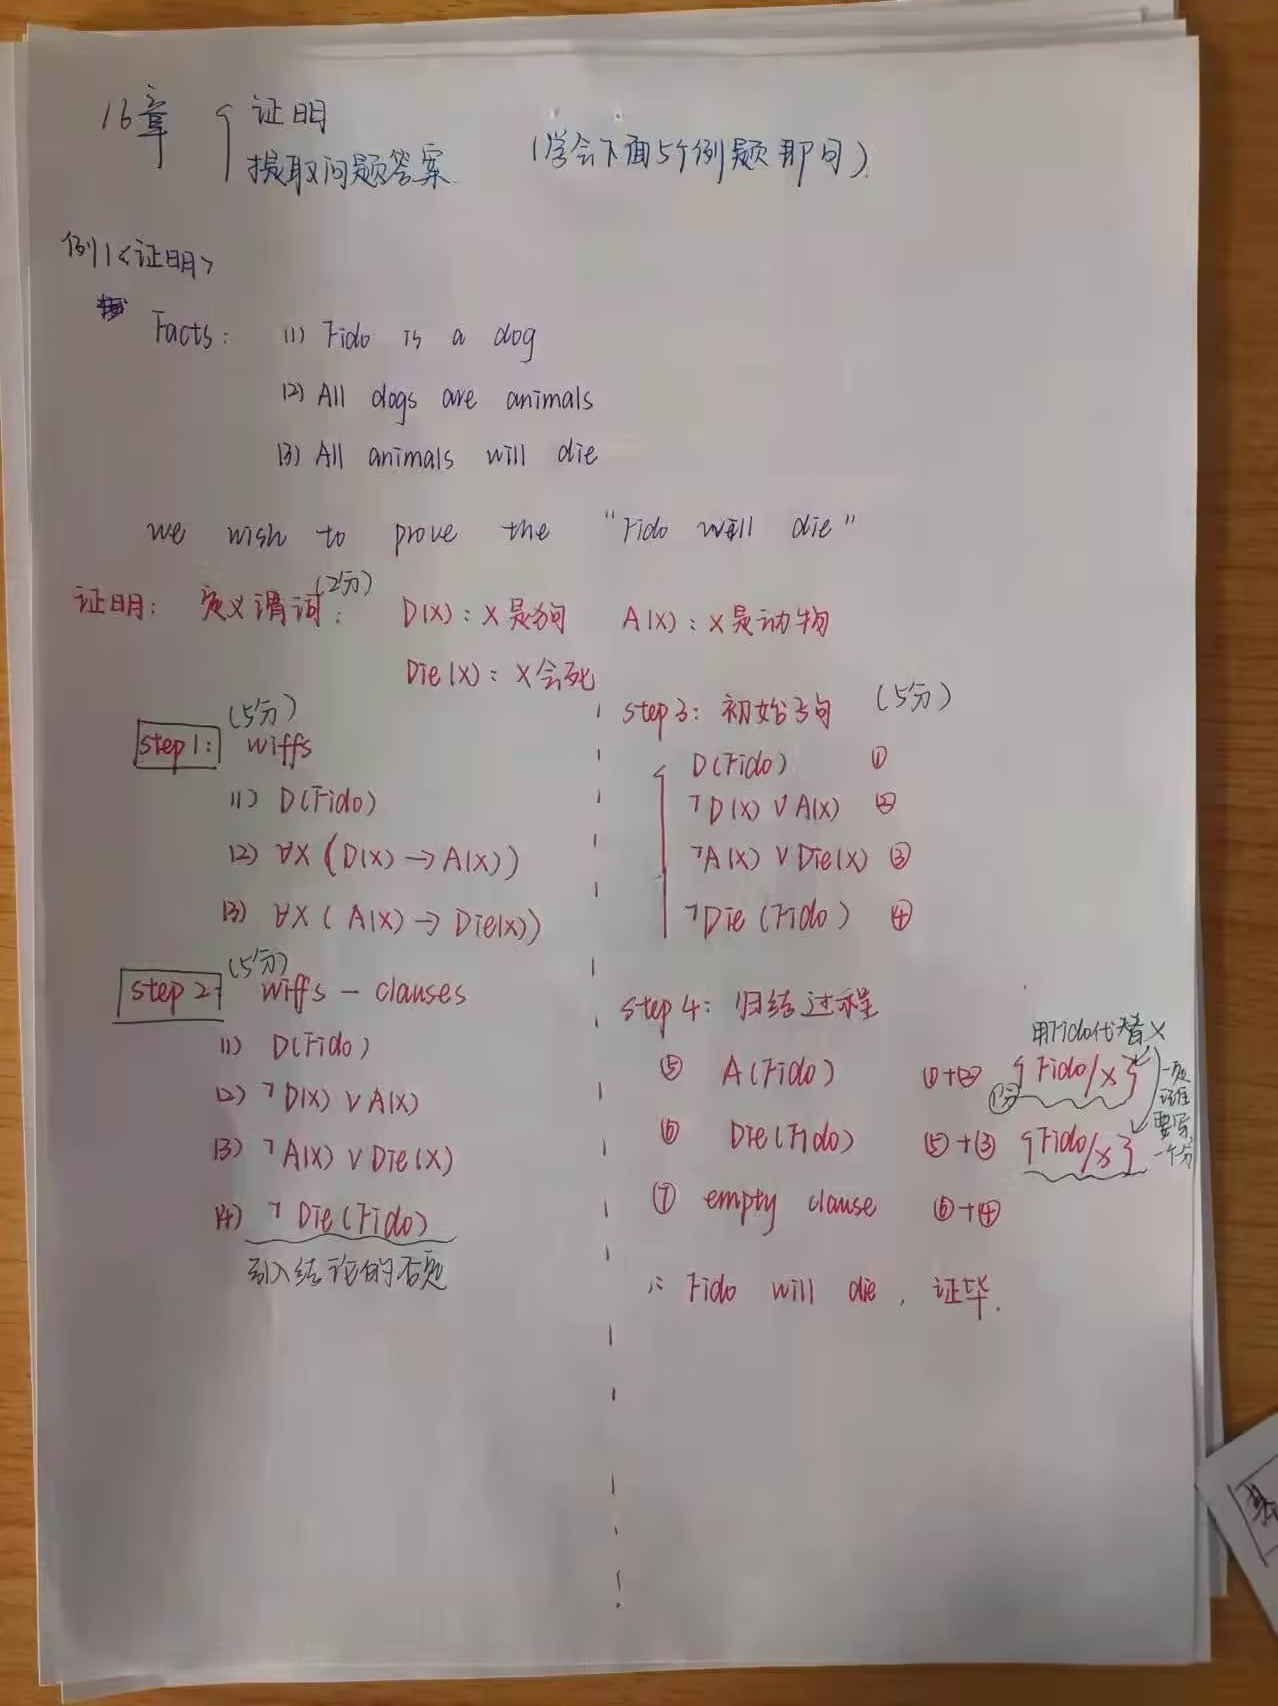 16章 { 证明
提取问题答案 (学会下面5个例题即可).
例1<证明>
Facts: (1) Fido is a dog
(2) All dogs are animals
(3) All animals will die
we wish to prove the "Fido will die"
证明: 定义谓词(2分): D(X): X是狗 A(X): X是动物
Die(X): X会死
(5分)
step1: wiffs
(1) D(Fido)
(2) ∀X (D(X) → A(X))
(3) ∀X (A(X) → Die(x))
(5分)
step2: wiffs - clauses
(1) D(Fido)
(2) ¬D(X) ∨ A(X)
(3) ¬A(X) ∨ Die(X)
(4) ¬Die(Fido)
引入结论的否定
step3: 初始子句 (5分)
D(Fido) ①
¬D(X) ∨ A(X) ②
¬A(X) ∨ Die(X) ③
¬Die(Fido) ④
step4: 归结过程
用Fido代替X
⑤ A(Fido) ①+② {Fido/x}
⑥ Die(Fido) ⑤+③ {Fido/x}
一定
要写,
一个分
⑦ empty clause ⑥+④
∴ Fido will die, 证毕.